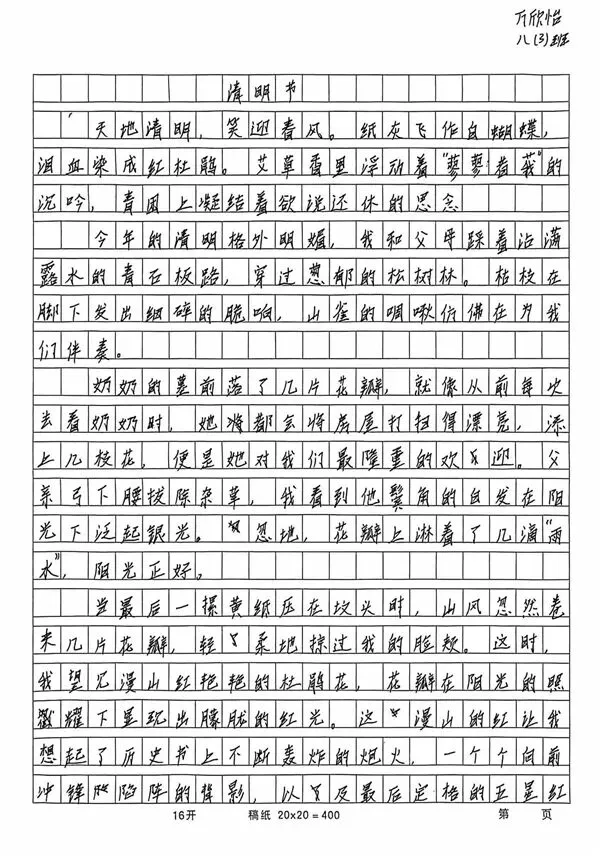 万欣怡
八(3)班
清明节
天地清明，笑迎春风。纸灰飞作白蝴蝶，
泪血染成红杜鹃。艾草香里浮动着“蓼蓼者莪”的
沉吟，青团上凝结着欲说还休的思念
今年的清明格外明媚，我和父母踩着沾满
露水的青石板路，穿过葱郁的松树林。枯枝在
脚下发出细碎的脆响，山雀的啁啾仿佛在为我
们伴奏。
奶奶的墓前落了几片花瓣，就像从前每次
去看奶奶时，她将都会将房屋打扫得漂亮，添
上几枝花，便是她对我们最隆重的欢迎。父
亲弓下腰拔除杂草，我看到他鬓角的白发在阳
光下泛起银光。忽地，花瓣上淋着了几滴“雨
水”，阳光正好。
当最后一摞黄纸压在坟头时，山风忽然卷
来几片花瓣，轻柔地掠过我的脸颊。这时，
我望见漫山红艳艳的杜鹃花，花瓣在阳光的照
耀下显现出朦胧的红光。这漫山的红让我
想起了历史书上不断轰炸的炮火，一个个向前
冲锋陷阵的背影，以及最后定格的五星红
16开 稿纸 20×20=400 第 页